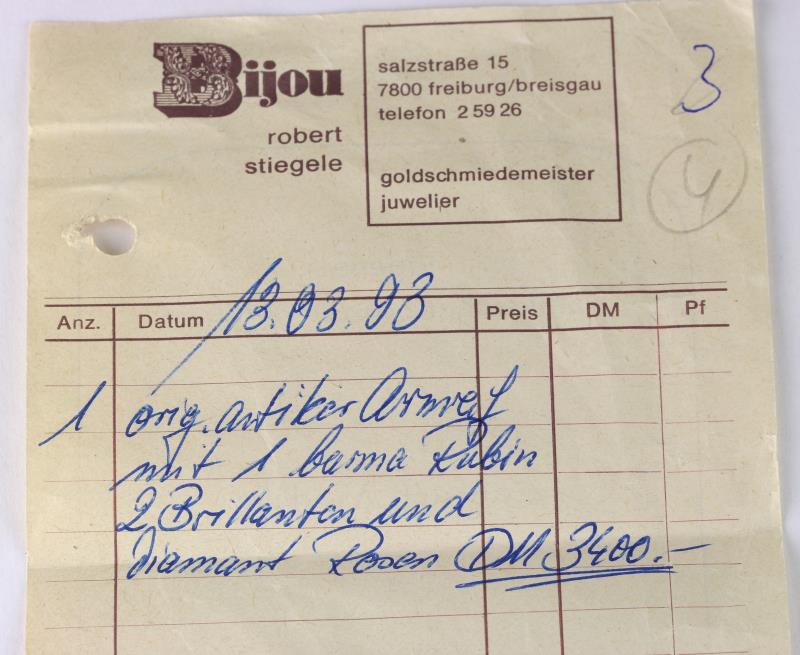 Bijou
robert
stiegele
salzstraße 15
7800 freiburg/breisgau
telefon 2 59 26
goldschmiedemeister
juwelier
3
4
Anz. Datum 13.03.93 Preis DM Pf
1 orig. antiker Armreif
mit 1 barma Rubin
2 Brillanten und
diamant Rosen DM 3400.—